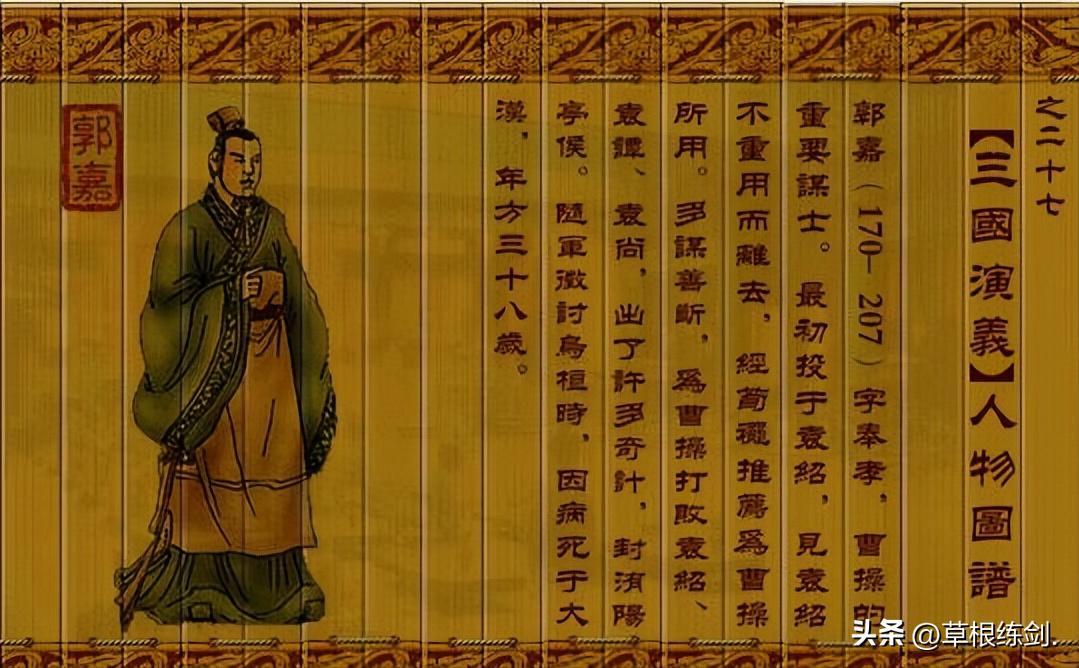 之二十七
【三國演義】人物圖譜
郭嘉（170—207）字奉孝，曹操的
重要謀士。最初投于袁紹，見袁紹
不重用而離去，經荀推薦爲曹操
所用。多謀善斷，爲曹操打敗袁紹、
袁譚、袁尚，出了許多奇計，封洧陽
亭侯。隨軍徵討烏桓時，因病死于大
漢，年方三十八歲。
郭嘉
头条 @草根练剑.